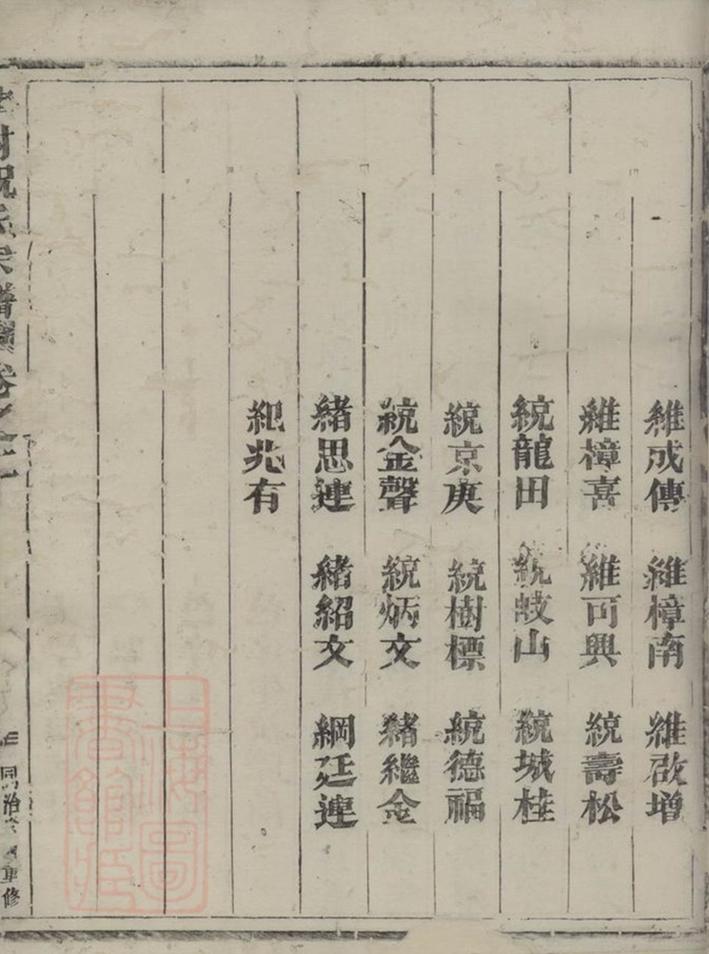 維成傳 維樟南 維啟增
維樟喜 維可興 統壽松
統龍田 統岐山 統城桂
統京庚 統樹標 統德福
統金聲 統炳文 緒繼金
緒思連 緒紹文 綱廷連
紀兆有
村祝氏宗譜 卷之
同治 重修
上海圖書館藏